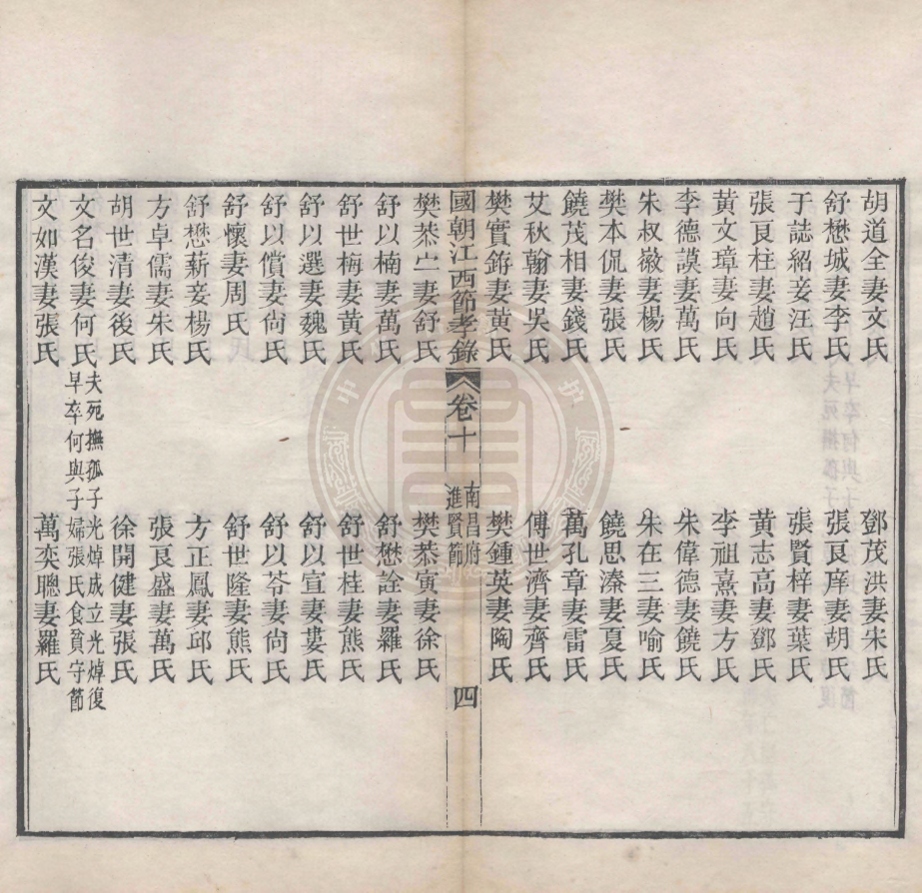 胡道全妻文氏　鄧茂洪妻朱氏
舒懋城妻李氏　張良庠妻胡氏
于誌紹妾汪氏　張賢梓妻葉氏
張良柱妻趙氏　黃志高妻鄧氏
黃文璋妻向氏　李祖熹妻方氏
李德謨妻萬氏　朱偉德妻饒氏
朱叔嶶妻楊氏　朱在三妻喻氏
樊本侃妻張氏　饒思溱妻夏氏
饒茂相妻錢氏　萬孔章妻雷氏
艾秋翰妻吳氏　傅世濟妻齊氏
樊實銌妻黃氏　樊鍾英妻陶氏
國朝江西節孝錄　卷十　南昌府進賢節　四
樊恭妻舒氏　樊恭寅妻徐氏
舒以楠妻萬氏　舒懋詮妻羅氏
舒世梅妻黃氏　舒世桂妻熊氏
舒以選妻魏氏　舒以宣妻婁氏
舒以償妻尙氏　舒以苓妻尙氏
舒懷妻周氏　舒世隆妻熊氏
舒懋薪妾楊氏　方正鳳妻邱氏
方卓儒妻朱氏　張良盛妻萬氏
胡世清妻後氏　徐開健妻張氏
文名俊妻何氏　夫死撫孤子光焯成立光焯復
早卒何與子婦張氏食貧守節
文如漢妻張氏　萬奕聰妻羅氏